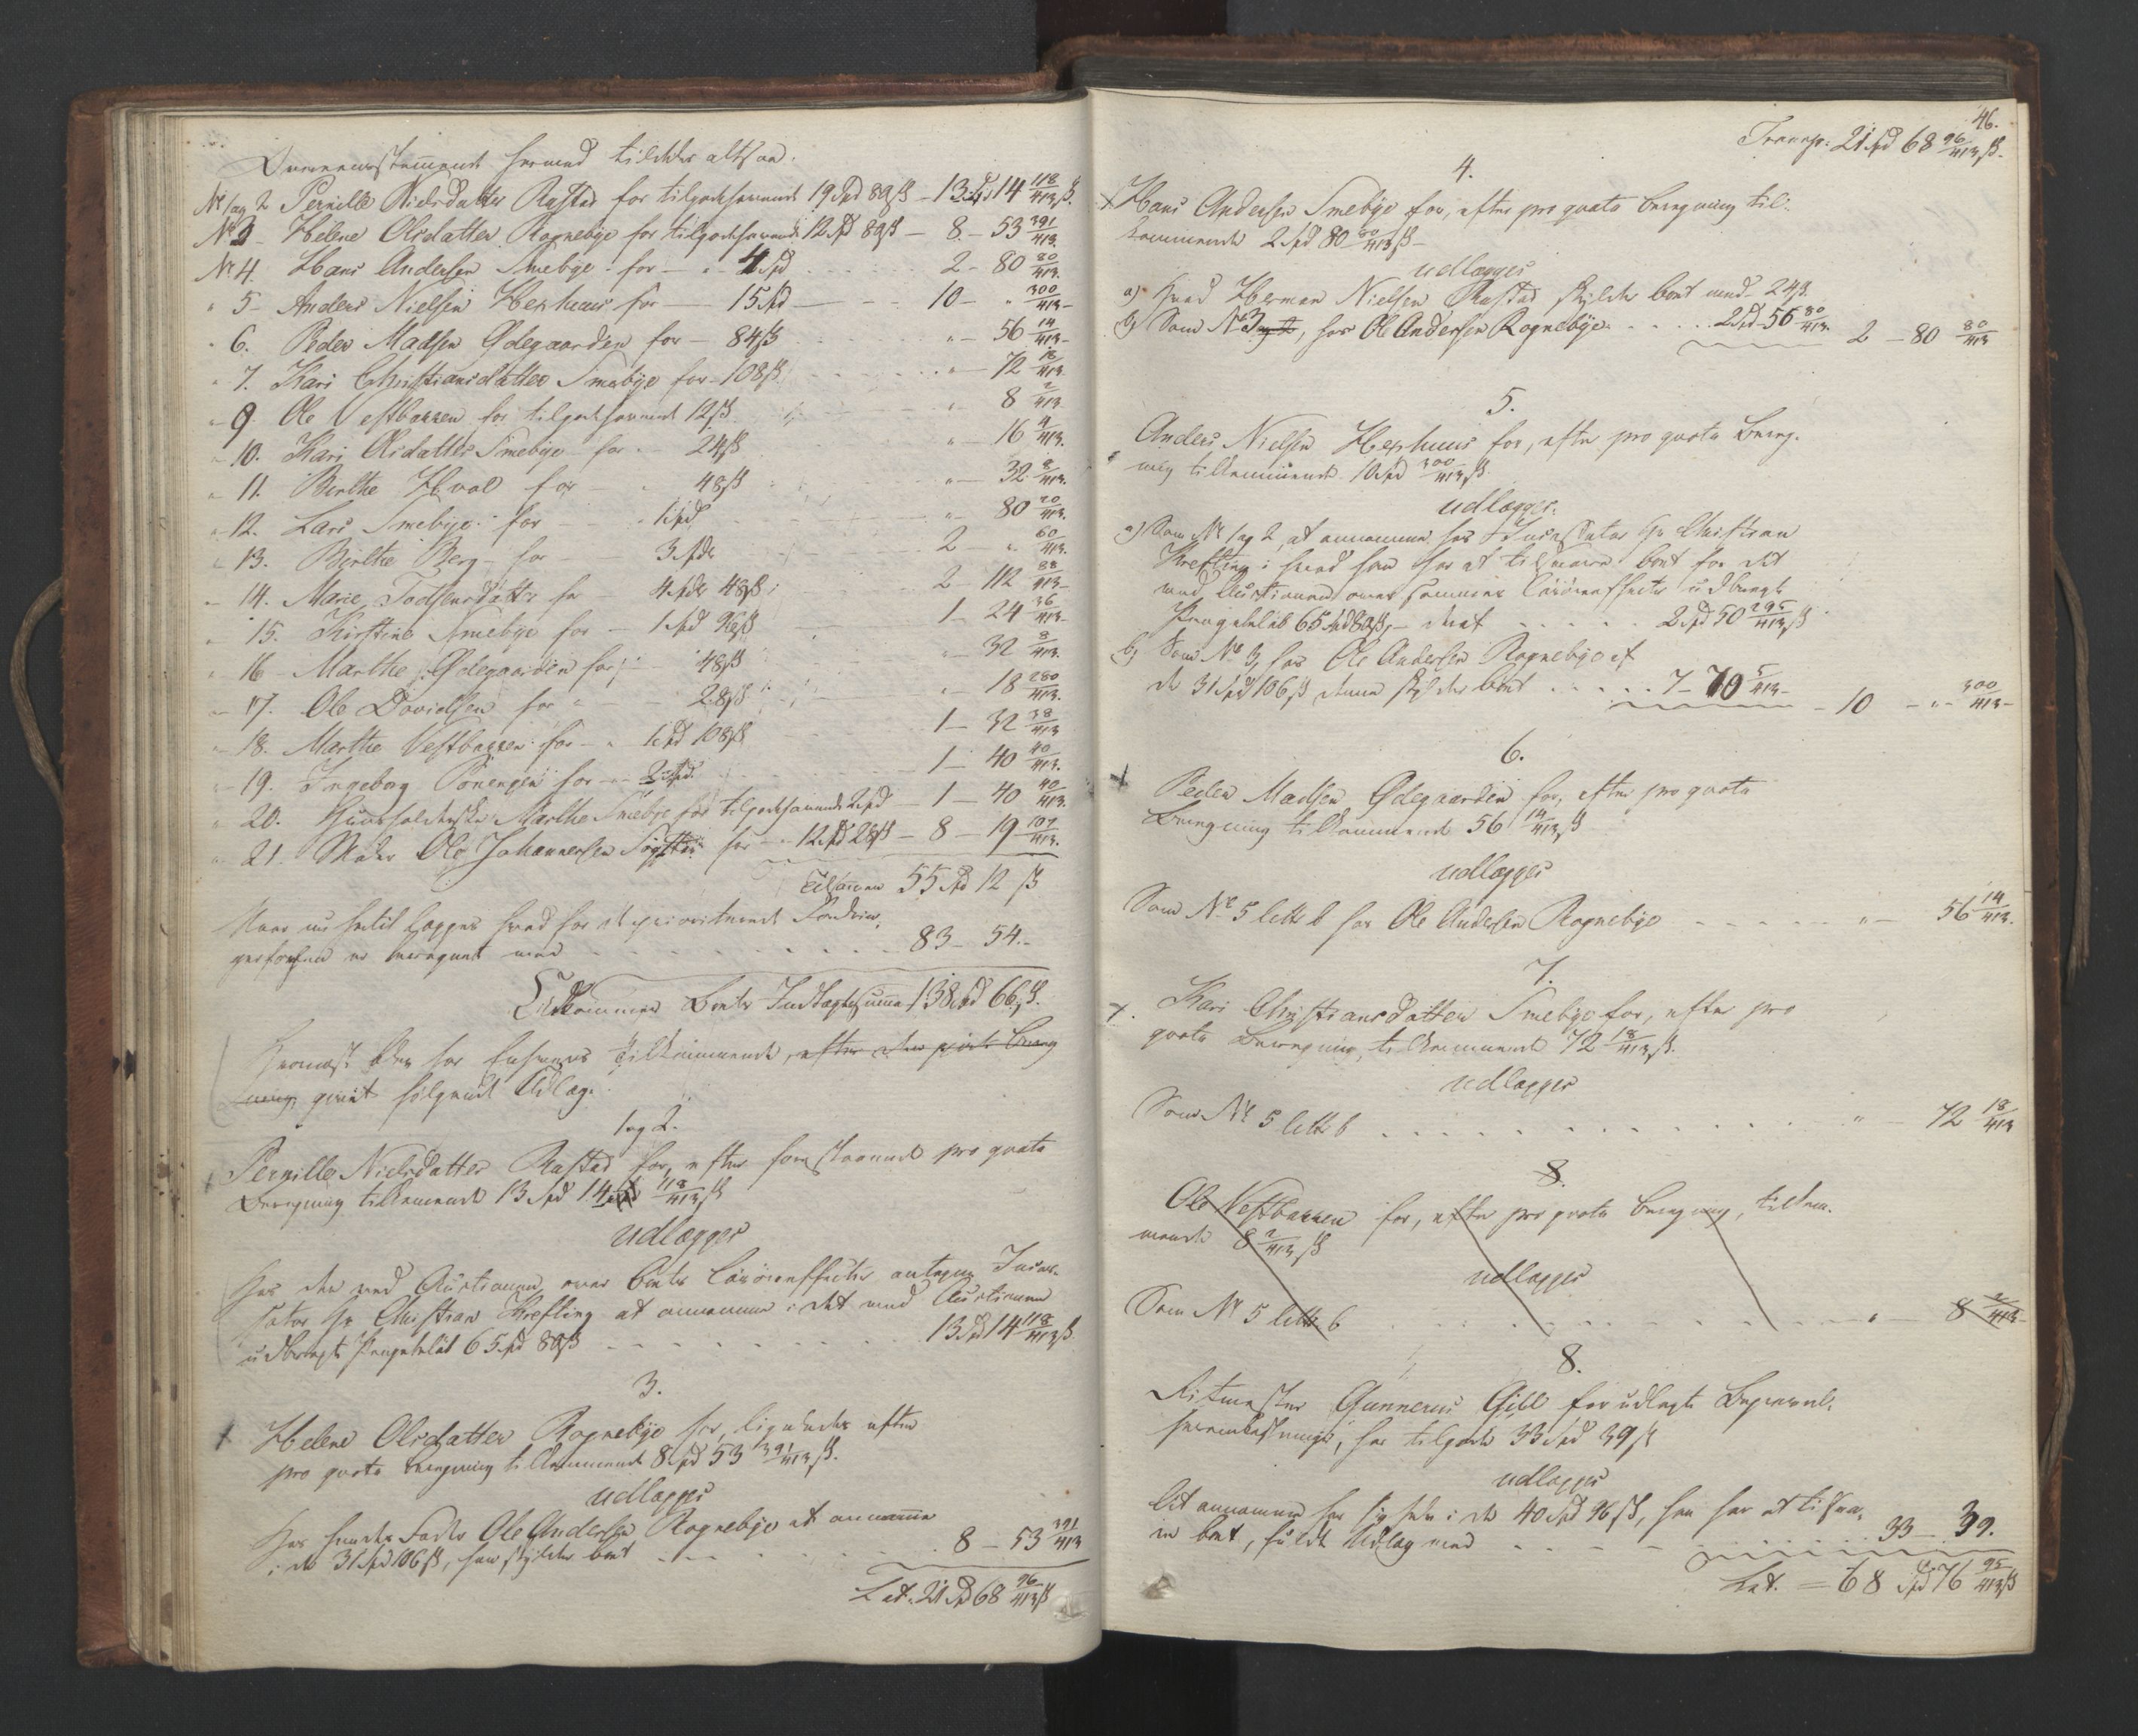 Overeensstemmende hermed tildeles altsaa.
No 1 og 2 Pernille Nielsdatter Rastad for tilgodehavende 19 Spd 89 ß – 13 Spd 14 118/413 ß.
No 3 – Helene Olsdatter Rognebye for tilgodehavende 12 Spd 89 ß – 8 – 53 391/413.
No 4. Hans Andersen Smebye for – " 4 Spd 2 – 80 80/413.
" 5 – Anders Nielsen Hexhuus for – 15 Spd – 10 – " 300/413 –
" 6. Peder Madsen Ødegaarden for – 84 ß " – 56 14/413 –
" 7. Kari Christiansdatter Smebye for – 108 ß " – 72 18/413.
" 9. Ole Vestbakken for tilgodehavende 12 ß " – 8 2/413
" 10. Kari Olsdatter Smebye for – 24 ß " – 16 4/413.
" 11. Berthe Hval for – 48 ß " – 32 8/413.
" 12. Lars Smebye for – 1 Spd " – 80 20/413.
" 13. Berthe Berg – for – 3 Spd 2 – " 60/413.
" 14. Marie Todsensdatter for – 4 Spd 48 ß 2 – 112 88/413 –
" 15. Kirstine Smebye for – 1 Spd 96 ß 1 – 24 36/413 –
" 16 – Marthe Ødegaarden for – 48 ß " – 32 8/413.
" 17. Ole Davidsen for – 28 ß " – 18 280/413.
" 18. Marthe Vestbakken for – 1 Spd 108 ß 1 – 32 38/413
" 19. Ingeborg for – 2 Spd. 1 – 40 40/413.
" 20. Huusholderske Marthe Smebye for tilgodehavende 2 Spd – 1 – 40 40/413.
" 21. Ole Johannesen for – 12 Spd 28 ß – 8 – 19 107/413.
Tilsammen 55 Spd 12 ß
Naar nu hertil lægges hvad for de prioriterede Fordrin-
ger foruden er beregnet med 83 – 54. –
Udkommer Boets Indtægtssumma 138 Spd 66 ß.
Hvornæst blev for Enhvers Tilkommende, efter den giorte Bereg
ning giort følgende Udlæg.
1 og 2.
Pernille Nielsdatter Rastad for, efter foranstaaende pro qvota
Beregning tilkommende 13 Spd 14 118/413 ß
udlægges
Hos den ved Auctionen over Boets Løsøreeffecter antagne Incas-
sator Hr Christian Krefting at annamme i det ved Auctionen
udbragte Pengebeløb 65 Spd 89 ß 13 Spd 14 118/413 ß.
3.
Helene Olsdatter Rognebye for, ligeledes efter
pro qvota Beregning tilkommende 8 Spd 53 391/413 ß.
udlægges
Hos hendes Fader Ole Andersen Rognebye at annamme
i de 31 Spd 106 ß, han skylder boet 8 – 53 391/413
Lat. 21 Spd 68 96/413 ß
46.
Transp: 21 Spd 68 96/413 ß.
4.
Hans Andersen Smebye for, efter pro qvota Beregning til-
kommende 2 Spd 80 80/413 ß –
udlægges
a) Hvad Herman Nielsen Rastad skylder boet med 24 ß.
b) Som No 3, hos Ole Andersen Rognebye 2 Spd 56 80/413. 2 – 80 80/413
5.
Anders Nielsen Hexhuus for, efter pro qvota Bereg-
ning tilkommende 10 Spd 300/413 ß.
udlægges.
a) Som No 1 og 2, at annamme hos Incassator Hr Christian
Krefting i hvad han har at tilsvare boet for det
ved Auctionen over sammes Løsøreeffecter udbragte
Pengebeløb 65 Spd 89 ß, – 2 Spd 50 295/413 ß
b) Som No 3, hos Ole Andersen Rognebye af
de 31 Spd 106 ß denne skylder boet 7 – 70 5/413 – – 10 – " – 300/413 –
6.
Peder Madsen Ødegaarden for, efter pro qvota
Beregning tilkommende 56 14/413 ß
udlægges
Som No 5 litr b hos Ole Andersen Rognebye " – 56 14/413.
7.
Kari Christiansdatter Smebye for, efter pro
qvota Beregning, tilkommende 72 18/413 ß.
udlægges
Som No 5 litr b " – 72 18/413
8.
Ole Vestbakken for, efter pro qvota Beregning, tilkom-
mende 8 2/413 ß
udlægges
Som No 5 litr b " – 8 2/413 –
8.
Ritmester Gunnerus Gill for udlagte Begravel-
sesomkostninger, har tilgode 33 Spd 39 ß
udlægges
At annamme hos sig selv i de 40 Spd 96 ß, han har at tilsva-
re boet, fuldt Udlæg med 33 – 39.
Lat. = 68 Spd 76 95/413 ß